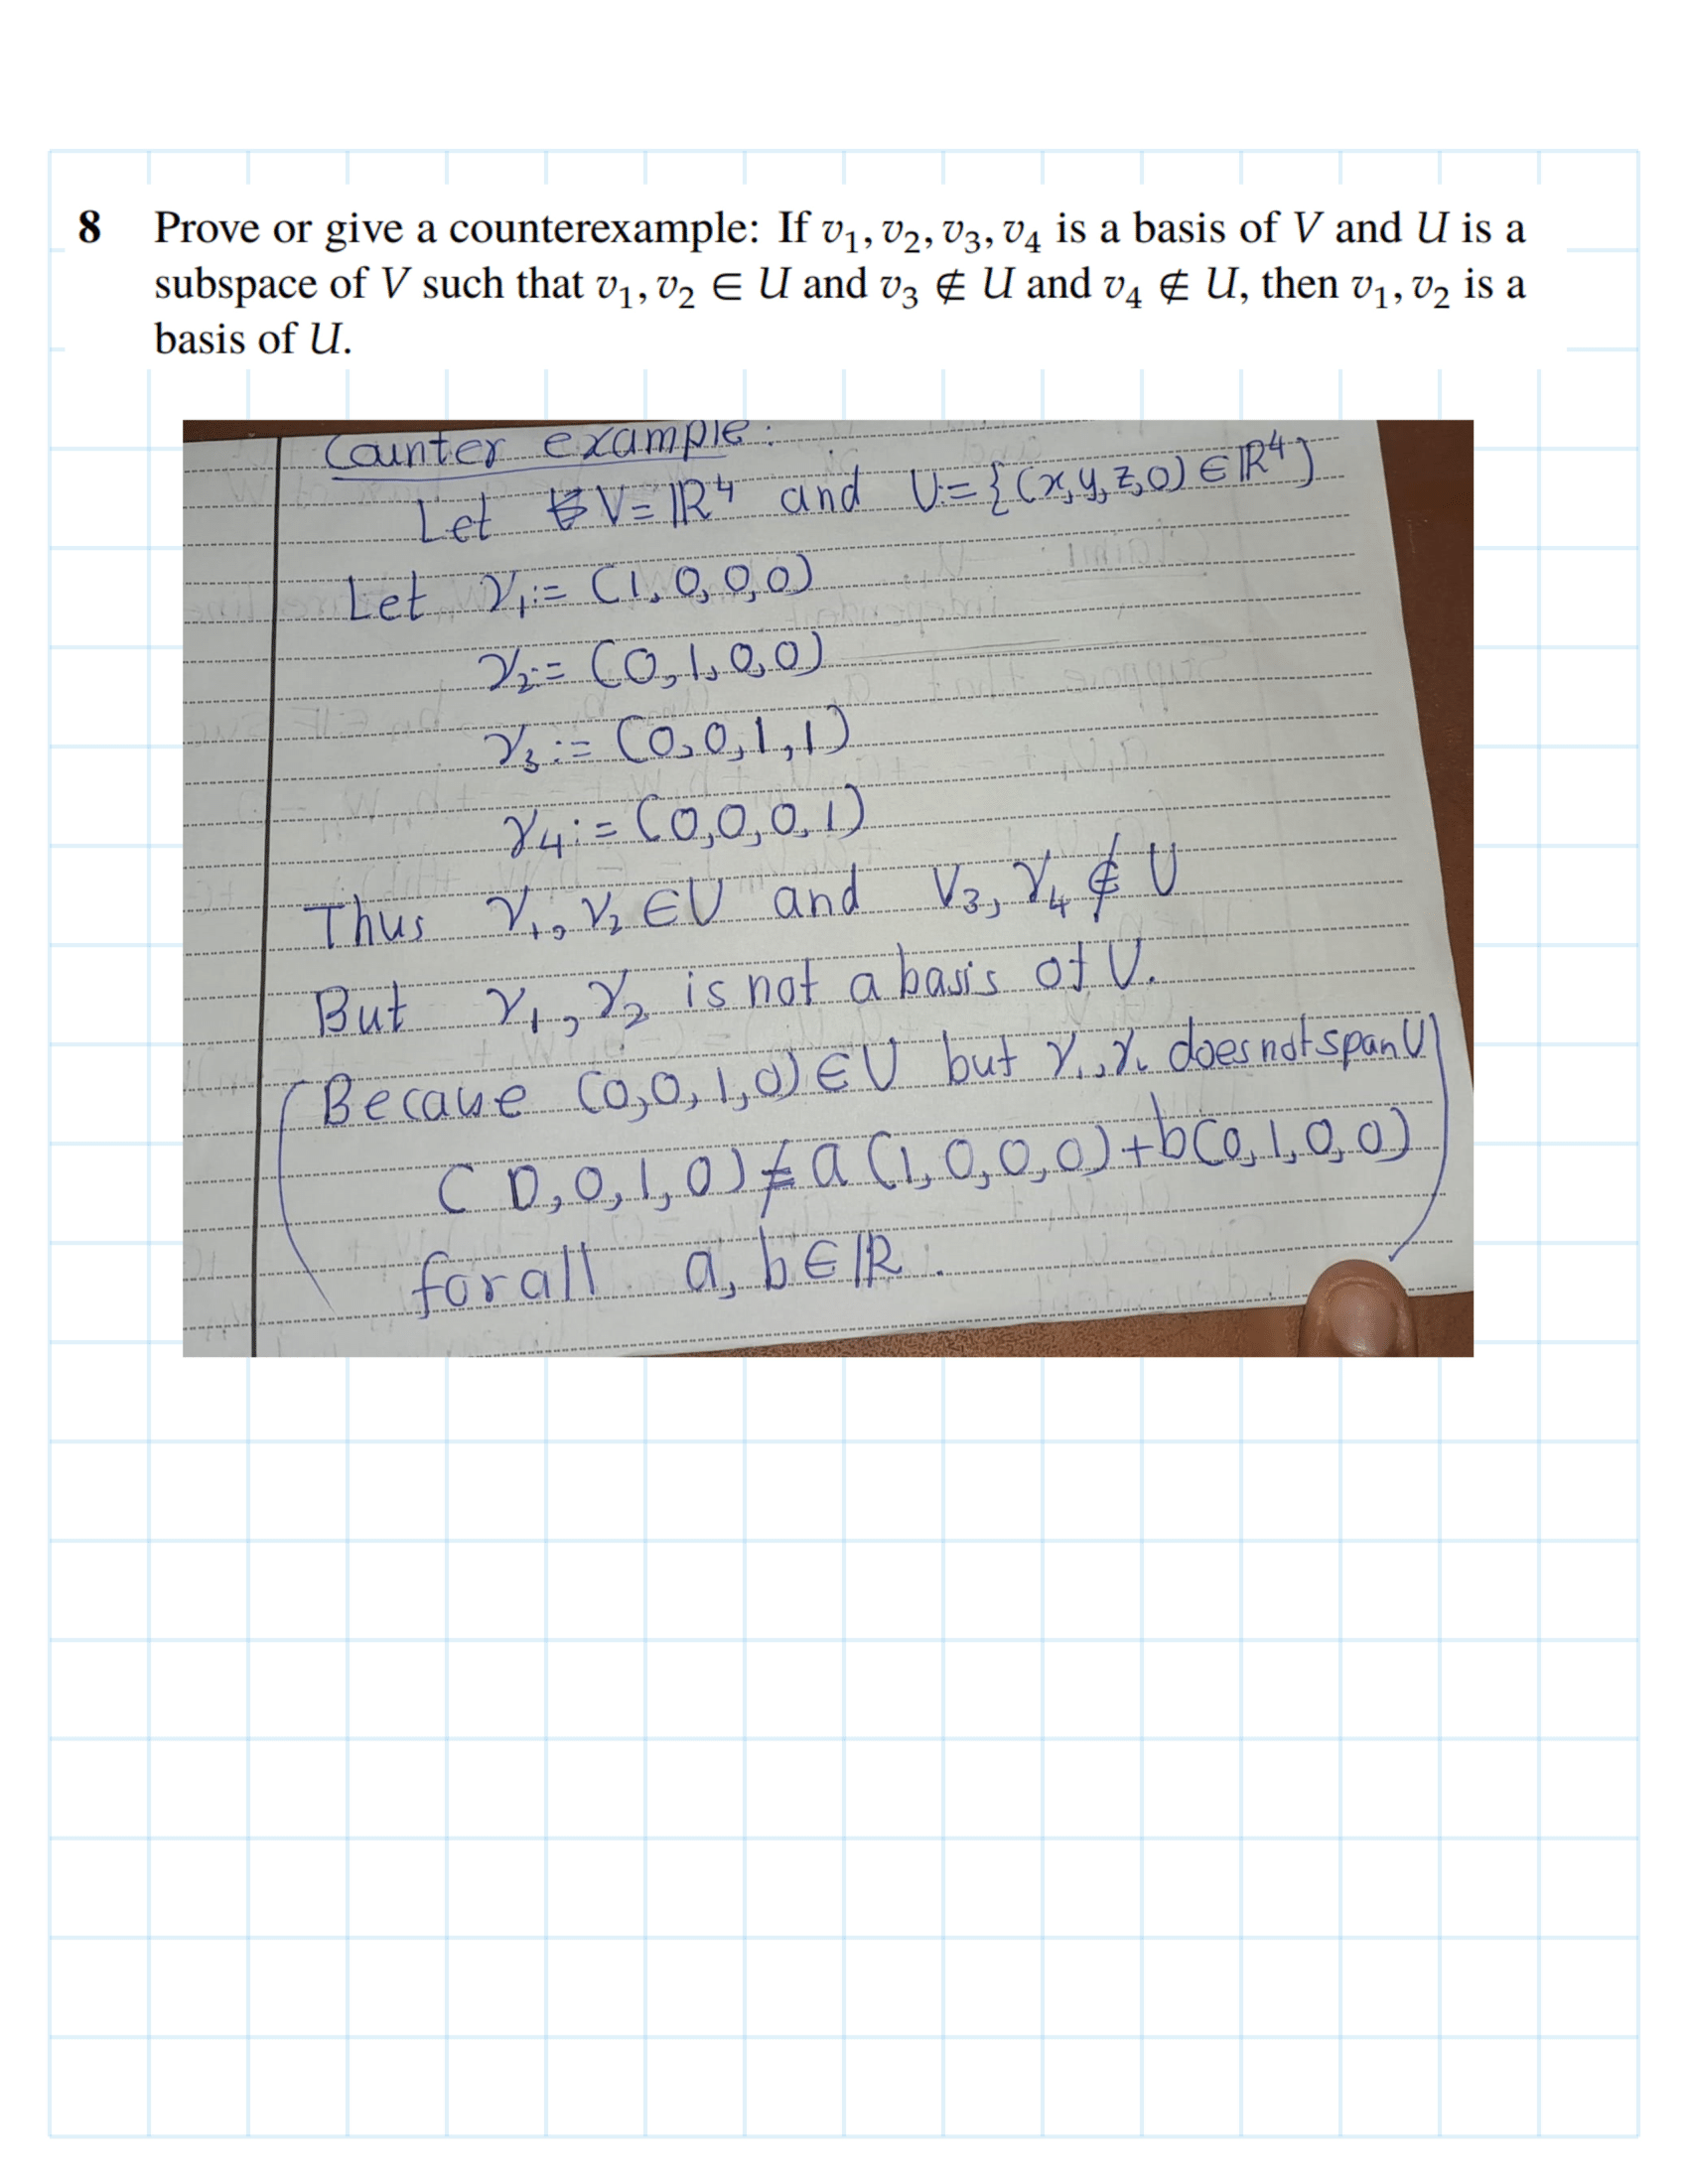 8 Prove or give a counterexample: If v₁, v₂, v₃, v₄ is a basis of V and U is a
subspace of V such that v₁, v₂ ∈ U and v₃ ∉ U and v₄ ∉ U, then v₁, v₂ is a
basis of U.
Counter example:
Let V = ℝ⁴ and U := {(x, y, z, 0) ∈ ℝ⁴}
Let v₁ := (1, 0, 0, 0)
v₂ := (0, 1, 0, 0)
v₃ := (0, 0, 1, 1)
v₄ := (0, 0, 0, 1)
Thus v₁, v₂ ∈ U and v₃, v₄ ∉ U
But v₁, v₂ is not a basis of U.
(Becaue (0, 0, 1, 0) ∈ U but v₁, v₂ does not span U
(0, 0, 1, 0) ≠ a(1, 0, 0, 0) + b(0, 1, 0, 0)
for all a, b ∈ ℝ.)